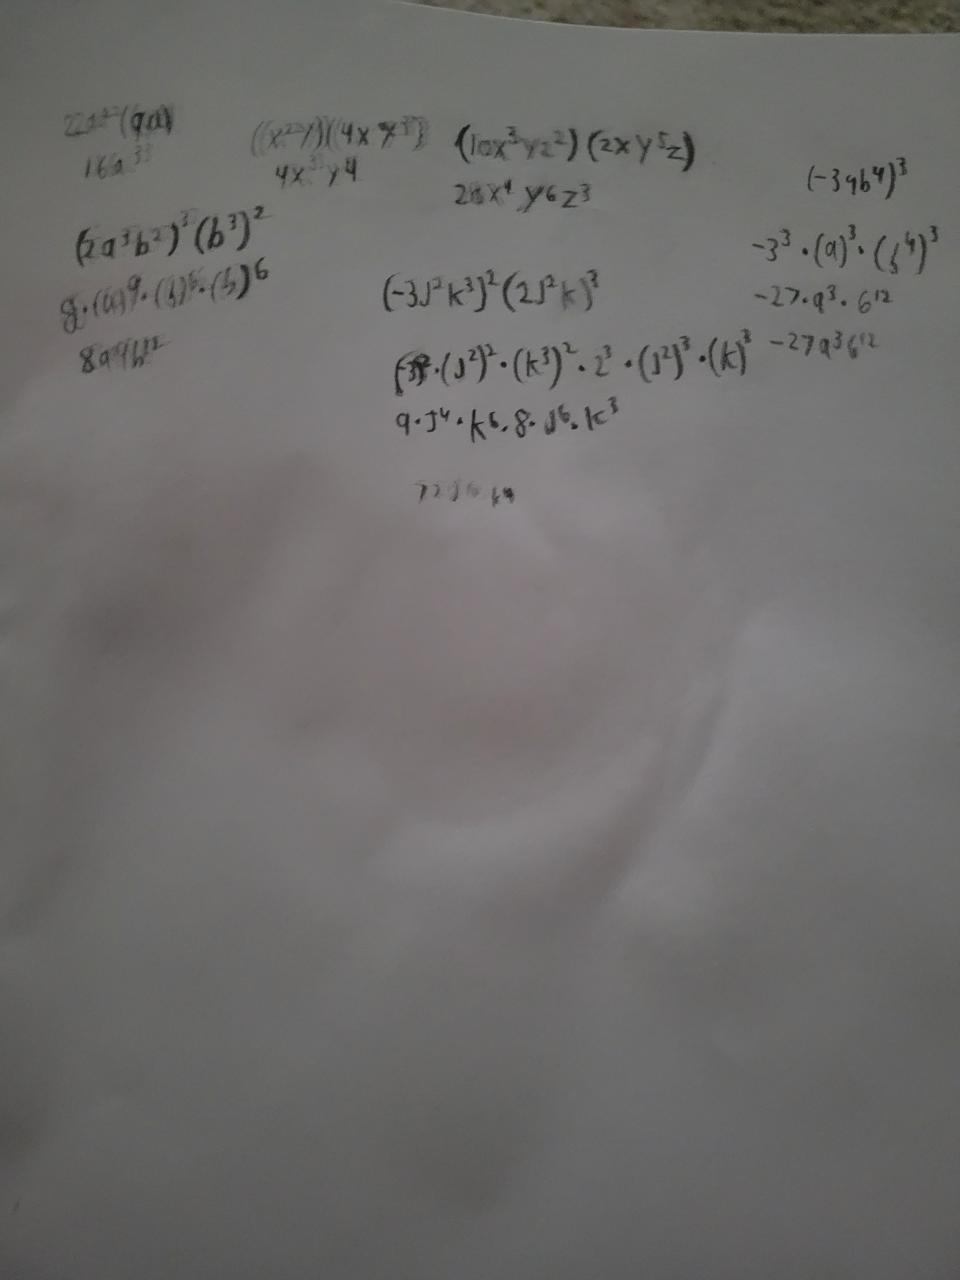 (9a)
16a³
(x²y)(4xy³)
4x³y4
(10x³yz²)(2xy⁵z)
20x⁴ y6z³
(-3ab⁴)³
-3³·(a)³·(b⁴)³
-27·a³·b12
-27a³b12
(2a³b²)³(b³)²
8·(a)9·(b)6·(b)6
8a9b12
(-3J²k³)²(2J²k)³
·(J²)²·(k³)²·2³·(J²)³·(k)³
9·J4·k6·8·J6·k³